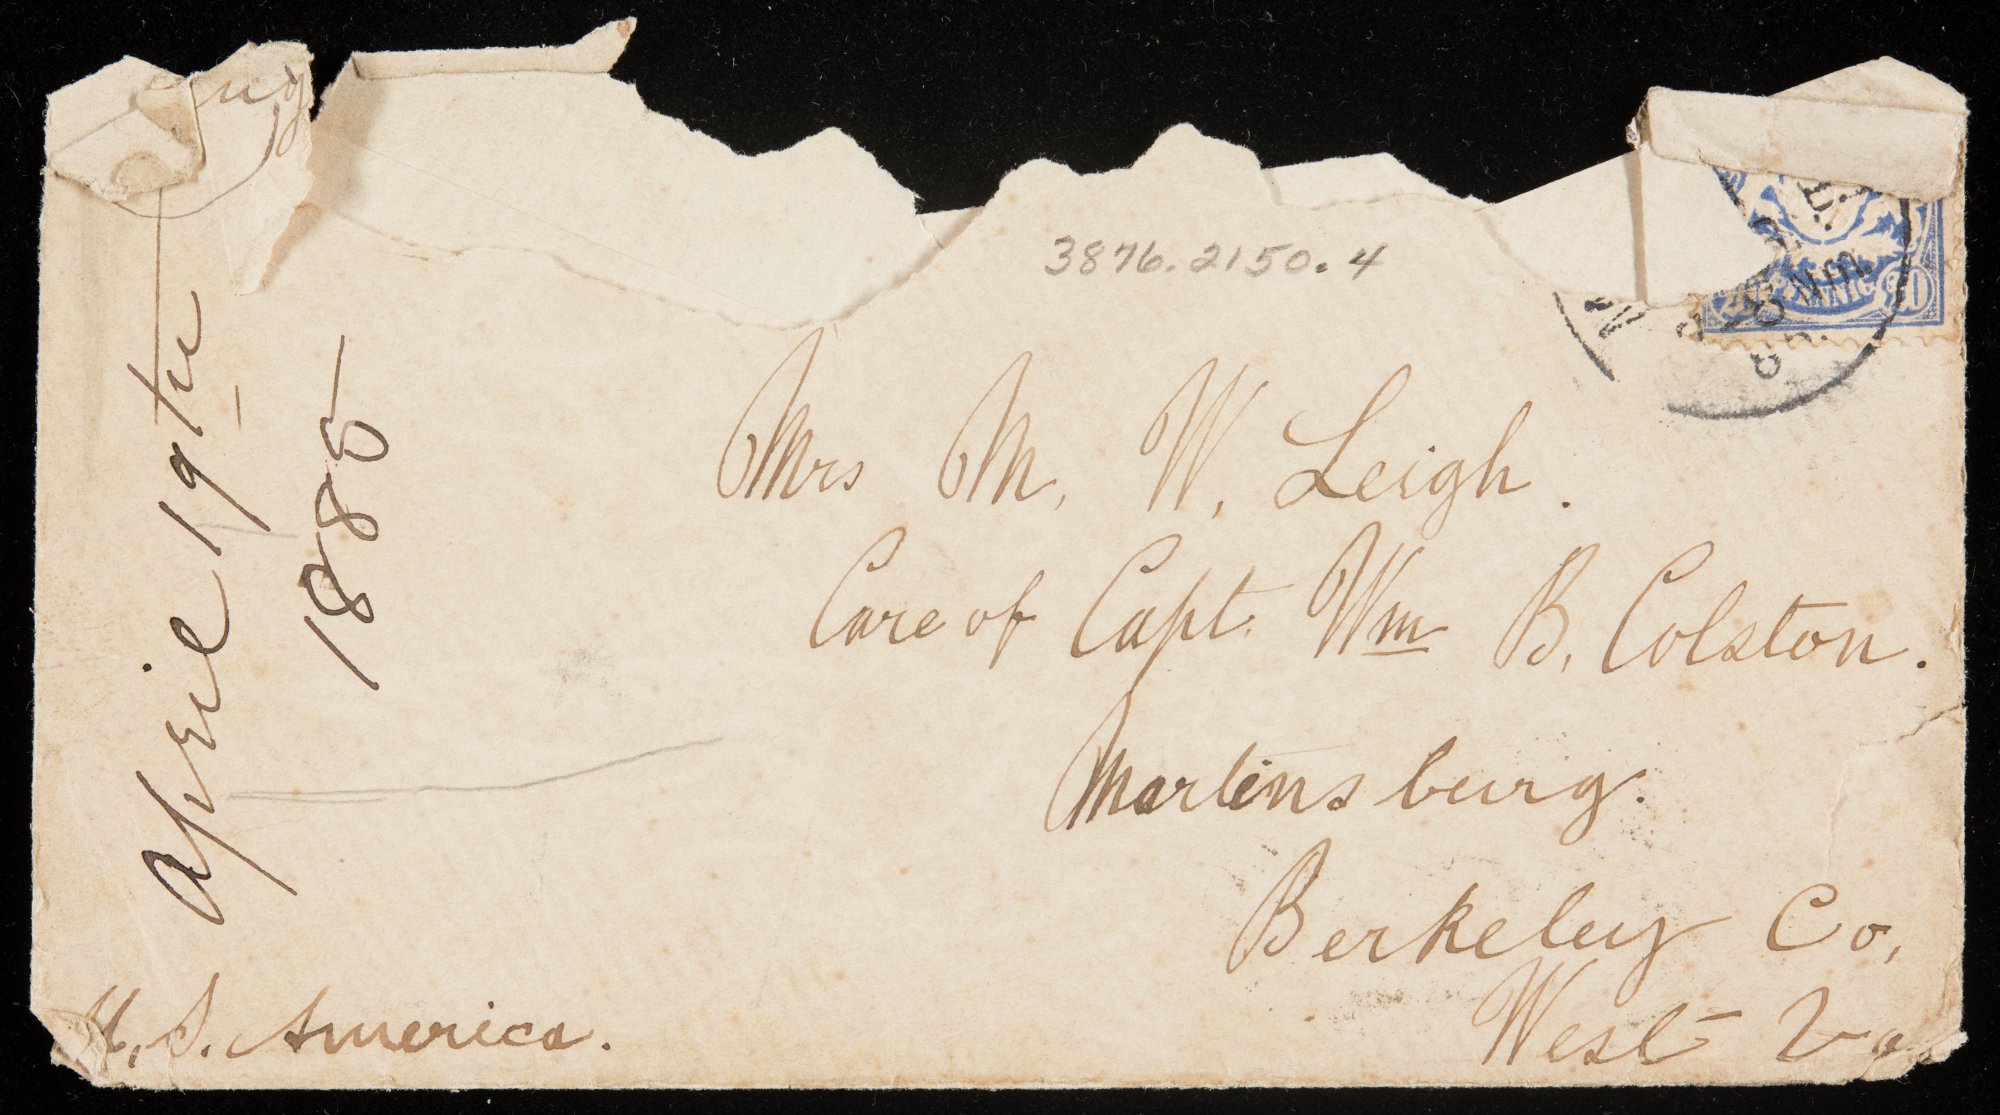 3876.2150.4
20 PFENNIG 20
April 19th
1885
Mrs M. W. Leigh.
Care of Capt. Wm B. Colston.
Martinsburg.
Berkeley Co,
West Va
U. S. America.